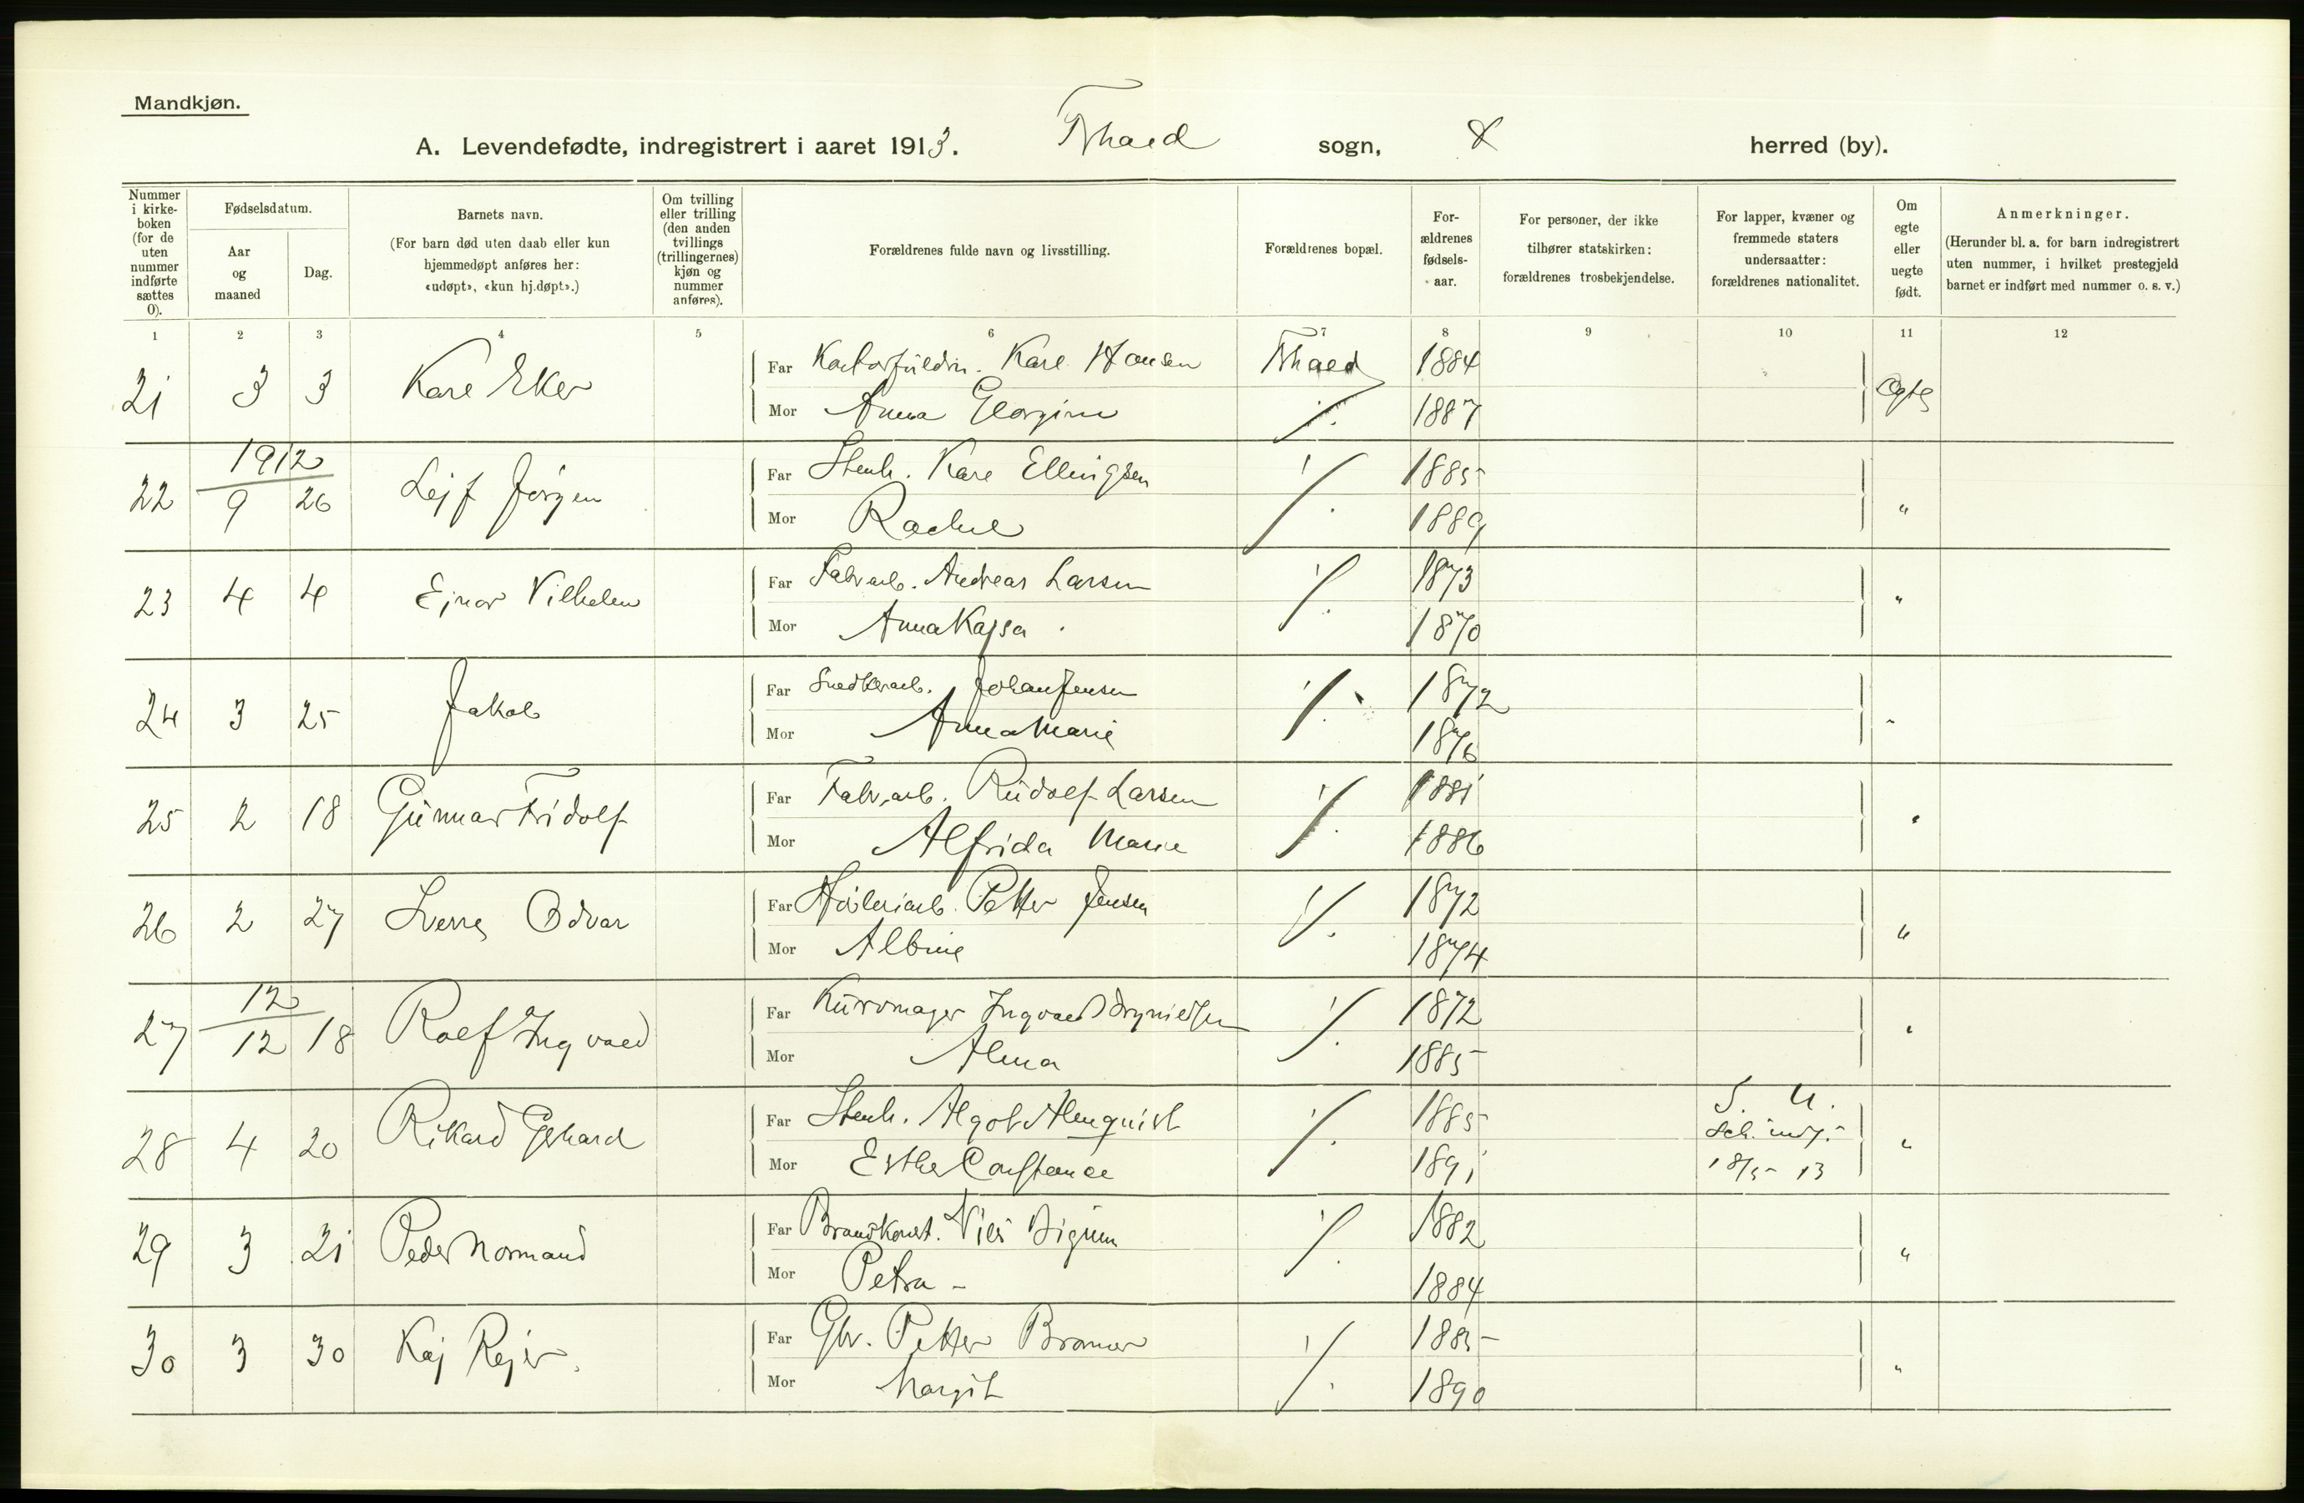 Mandkjøn.
A. Levendefødte, indregistrert i aaret 1913. sogn, herred (by).
Nummer i kirke-boken (for de uten nummer indførte sættes 0).
Fødselsdatum.
Aar og maaned
Dag.
Barnets navn.
(For barn død uten daab eller kun hjemmedøpt anføres her: «udøpt», «kun hj.døpt».)
Om tvilling eller trilling (den anden tvillings (trillingernes) kjøn og nummer anføres).
Forældrenes fulde navn og livsstilling.
Forældrenes bopæl.
For-ældrenes fødsels-aar.
For personer, der ikke tilhører statskirken: forældrenes trosbekjendelse.
For lapper, kvæner og fremmede staters undersaatter: forældrenes nationalitet.
Om egte eller uegte født.
Anmerkninger.
(Herunder bl. a. for barn indregistrert uten nummer, i hvilket prestegjeld barnet er indført med nummer o. s. v.)
1 2 3 4 5 6 7 8 9 10 11 12
21 3 3 Kare Eker Far Karl Hansen 1884 Ægte
Mor Anna Georgine 1887
1912
22 9 26 Lejf Jørgen Far Stenh. Kare Ellingsen 1885 "
Mor Rachel 1889
23 4 4 Ejnar Vilhelm Far Fabr.arb. Andreas Larsen 1873 "
Mor Anna Kajsa 1870
24 3 25 Jakob Far Snedkerarb. Johan Jensen 1872 "
Mor Anna Marie 1876
25 2 18 Gunnar Fridolf Far Fabr.arb. Rudolf Larsen 1881 "
Mor Alfrida Marie 1886
26 2 27 Sverre Odvar Far Høvleriarb. Petter Jensen 1872 "
Mor Albine 1874
12
27 12 18 Rolf Ingvald Far Kurvmager Ingvald 1872 "
Mor Alma 1885
28 4 20 Rikard Gerhard Far Stenh. Algot Almquist 1885 S. U. "
Mor Esther Constance 1891 18/5 - 13
29 3 21 Peder Normand Far Nils 1882 "
Mor Petra - 1884
30 3 30 Kaj Rejer. Far Gbr. Petter 1885 "
Mor Margit 1890